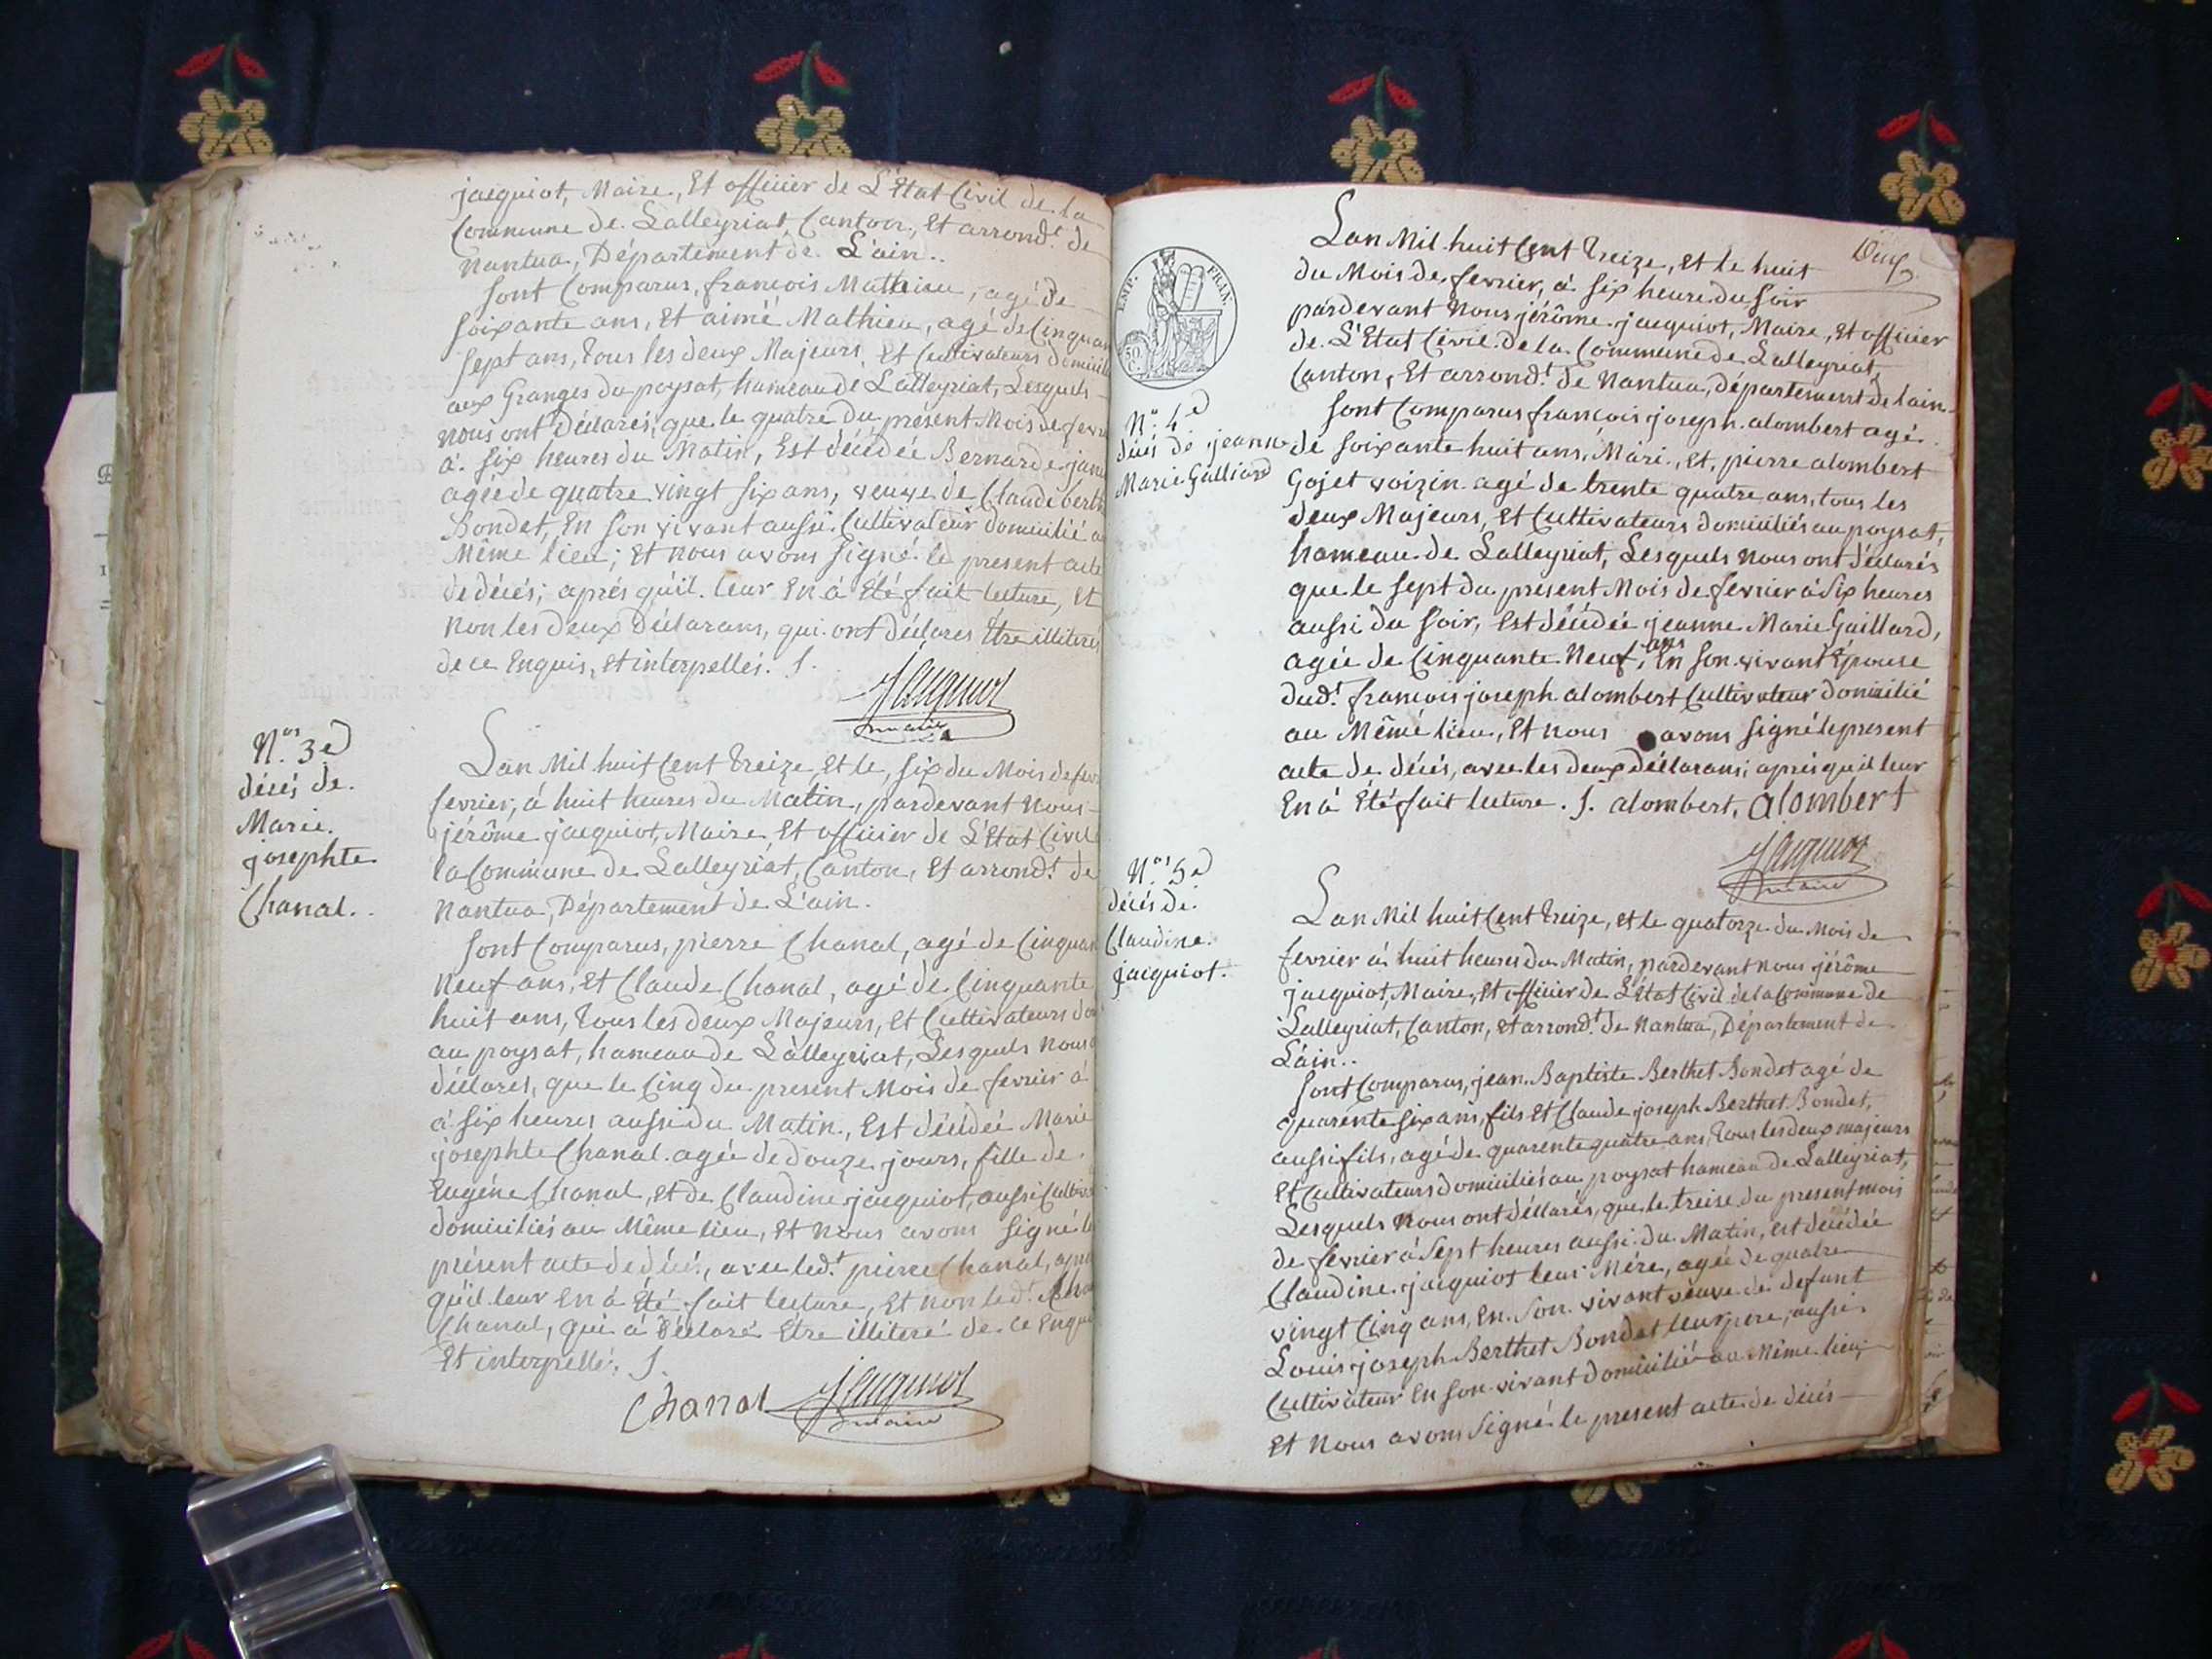 jacquiot, Maire, Et officier de L'Etat Civil de la
Commune de Lalleyriat, Canton, Et arrond.t de
Nantua, Département de L'ain..
Sont Comparus, francois Mathieu, agé de
soixante ans, Et aimé Mathieu, agé de Cinquan
sept ans, tous les deux Majeurs, et Cultivateurs domicili
aux Granges du poysat, hameau de Lalleyriat, Lesquels
nous ont Déclarés, que le quatre du présent Mois de fevri
à six heures du Matin, Est décédée Bernarde
agée de quatre vingt six ans, veuve de Claude berth
Bondet, En son vivant aussi Cultivateur domicilié au
Même lieu; Et nous avons signé le present acte
de décés; aprés qu'il leur En à Eté fait lecture, Et
non les deux Déclarans, qui ont déclarés Etre illiteres
de ce Enquis, et interpellés. /.
Jacquiot
maire
N.os 3.e
décés de
Marie
josephte
Chanal..
Lan Mil huit Cent treize, Et le, six du Mois de fev
fevrier, à huit heures du Matin, pardevant Nous
jérôme jacquiot, Maire, Et officier de L'Etat Civil
la Commune de Lalleyriat, Canton, Et arrond.t de
Nantua, Département de L'ain.
Sont Comparus, pierre Chanal, agé de Cinquan
neuf ans, Et Claude Chanal, agé de Cinquante
huit ans, tous les deux Majeurs, Et Cultivateurs do
au poysat, hameau de Lalleyriat, Lesquels nous
déclarés, que le Cinq du present Mois de fevrier à
à six heures aussi du Matin, Est décédée Marie
josephte Chanal agée de douze jours, fille de
Eugéne Chanal, et de Claudine jacquiot, aussi Cultiva
domiciliés au Même lieu, Et nous avons signé le
présent acte de décés, avec led.t pierre Chanal, apré
qu'il leur En à Eté fait lecture, Et non led.t
Chanal, qui à déclaré Etre illiteré de ce Enqui
Et interpellé. /.
Chanal Jacquiot
maire
Lan Mil huit Cent treize, Et le huit
du Mois de fevrier, à six heure du soir
pardevant Nous jérôme jacquiot, Maire, Et officier
de L'Etat Civil de la Commune de Lalleyriat,
Canton, Et arrond.t de Nantua, département de lain
EMP. FRAN.
50 C.
N.o 4.e
décés de jeanne
Marie Galliard
Sont Comparus francois joseph alombert agé
de soixante huit ans, Mari, Et, pierre alombert
Gojet voizin agé de trente quatre ans, tous les
deux Majeurs, Et Cultivateurs domiciliés au poysat,
hameau de Lalleyriat, Lesquels Nous ont déclarés
que le sept du present Mois de fevrier à six heures
aussi du soir, Est décédée jeanne Marie Gaillard,
agée de Cinquante Neuf, ans En son vivant Epouse
dud.t francois joseph alombert Cultivateur domicilié
au Même lieu, Et nous avons signé le present
acte de décés, avec les deux déclarans; aprés qu'il leur
En à Eté fait lecture. /. alombert, alombert
Jacquiot
maire
N.os 5.e
décés de
Claudine
jacquiot.
Lan Mil huit Cent treize, et le quatorze du Mois de
fevrier à huit heures du Matin, pardevant nous jérôme
jacquiot, Maire, et officier de L'Etat Civil de la Commune de
Lalleyriat, Canton, et arrond.t de Nantua, Département de
L'ain..
Sont Comparus, jean Baptiste Berthet Bondet agé de
quarente six ans, fils Et Claude joseph Berthet Bondet,
aussi fils, agé de quarente quatre ans, tous les deux majeurs
Et Cultivateurs domiciliés au poysat hameau de Lalleyriat,
Lesquels nous ont déclarés, que le treise du present mois
de fevrier à sept heures aussi du Matin, est décédée
Claudine jacquiot leur Mére, agée de quatre
vingt Cinq ans, En son vivant veuve de defunt
Louis joseph Berthet Bondet leur pere, aussi
Cultivateur En son vivant domicilié au Même lieu;
Et nous avons signé le present acte de décés